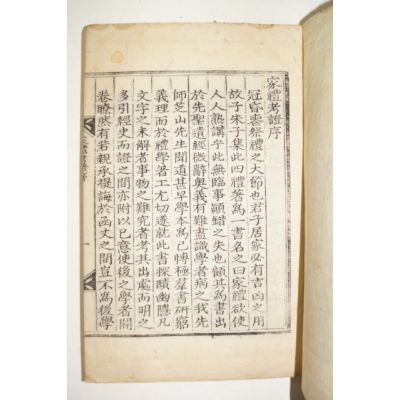 家禮考證序
冠昏喪祭禮之大節也君子居家必有吉凶之用
故子朱子集此四禮著為一書名之曰家禮欲使
人人熟講乎此無臨事顚錯之失也顧其為書出
於先聖遺經微辭奧義有難盡識學者病之我先
師芝山先生聞道甚早學本為己博極羣書研窮
義理而於禮學著工尤切遂就此書探賾幽隱凡
文字之未解者事物之難究者考其出處而明之
多引經史而證之間亦附以己意使後之學者
卷瞭然有若親承提誨於函丈之間豈不為後學